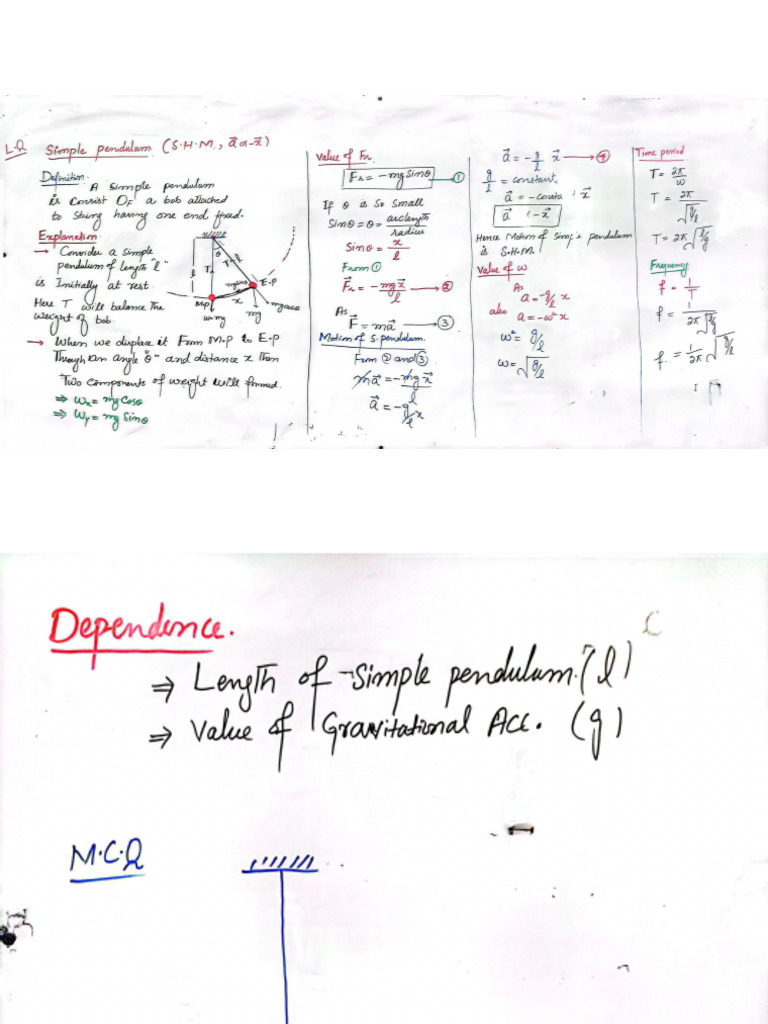 L.Q Simple pendulum (S.H.M., a⃗ α -x⃗)
Definition.
A simple pendulum
is Consist Of a bob attached
to String having one end fixed.
Explanation.
→ Consider a simple
pendulum of length "l"
is Initially at rest.
Here T will balance the
weight of bob.
→ When we displace it From M.P to E.P
Through an angle "θ" and distance x then
Two Components of weight will formed.
⇒ Wx = mg Cosθ
⇒ Wy = mg Sinθ
θ
l
T
E.P
M.P
x
w=mg
mg
Value of Fr
Fr = -mg Sinθ → ①
If θ is So small
Sinθ = θ = arc length / radius
Sinθ = x/l
From ①
F⃗r = -mg x⃗/l → ②
As
F⃗ = ma⃗ → ③
Motion of S. pendulum.
From ② and ③
ma⃗ = -mg x⃗/l
a⃗ = -g/l x
a⃗ = -g/l x⃗ → ④
g/l = constant.
Hence Motion of Simp pendulum
is S.H.M.
Value of w
As
a = -g/l x
also a = -w²x
w² = g/l
w = √g/l
Time period
T = 2π/w
T = 2π/√g/l
Frequency
f = 1/T
Dependence.
⇒ Length of Simple pendulum. (l)
⇒ Value of Gravitational Acc. (g)
M.C.Q